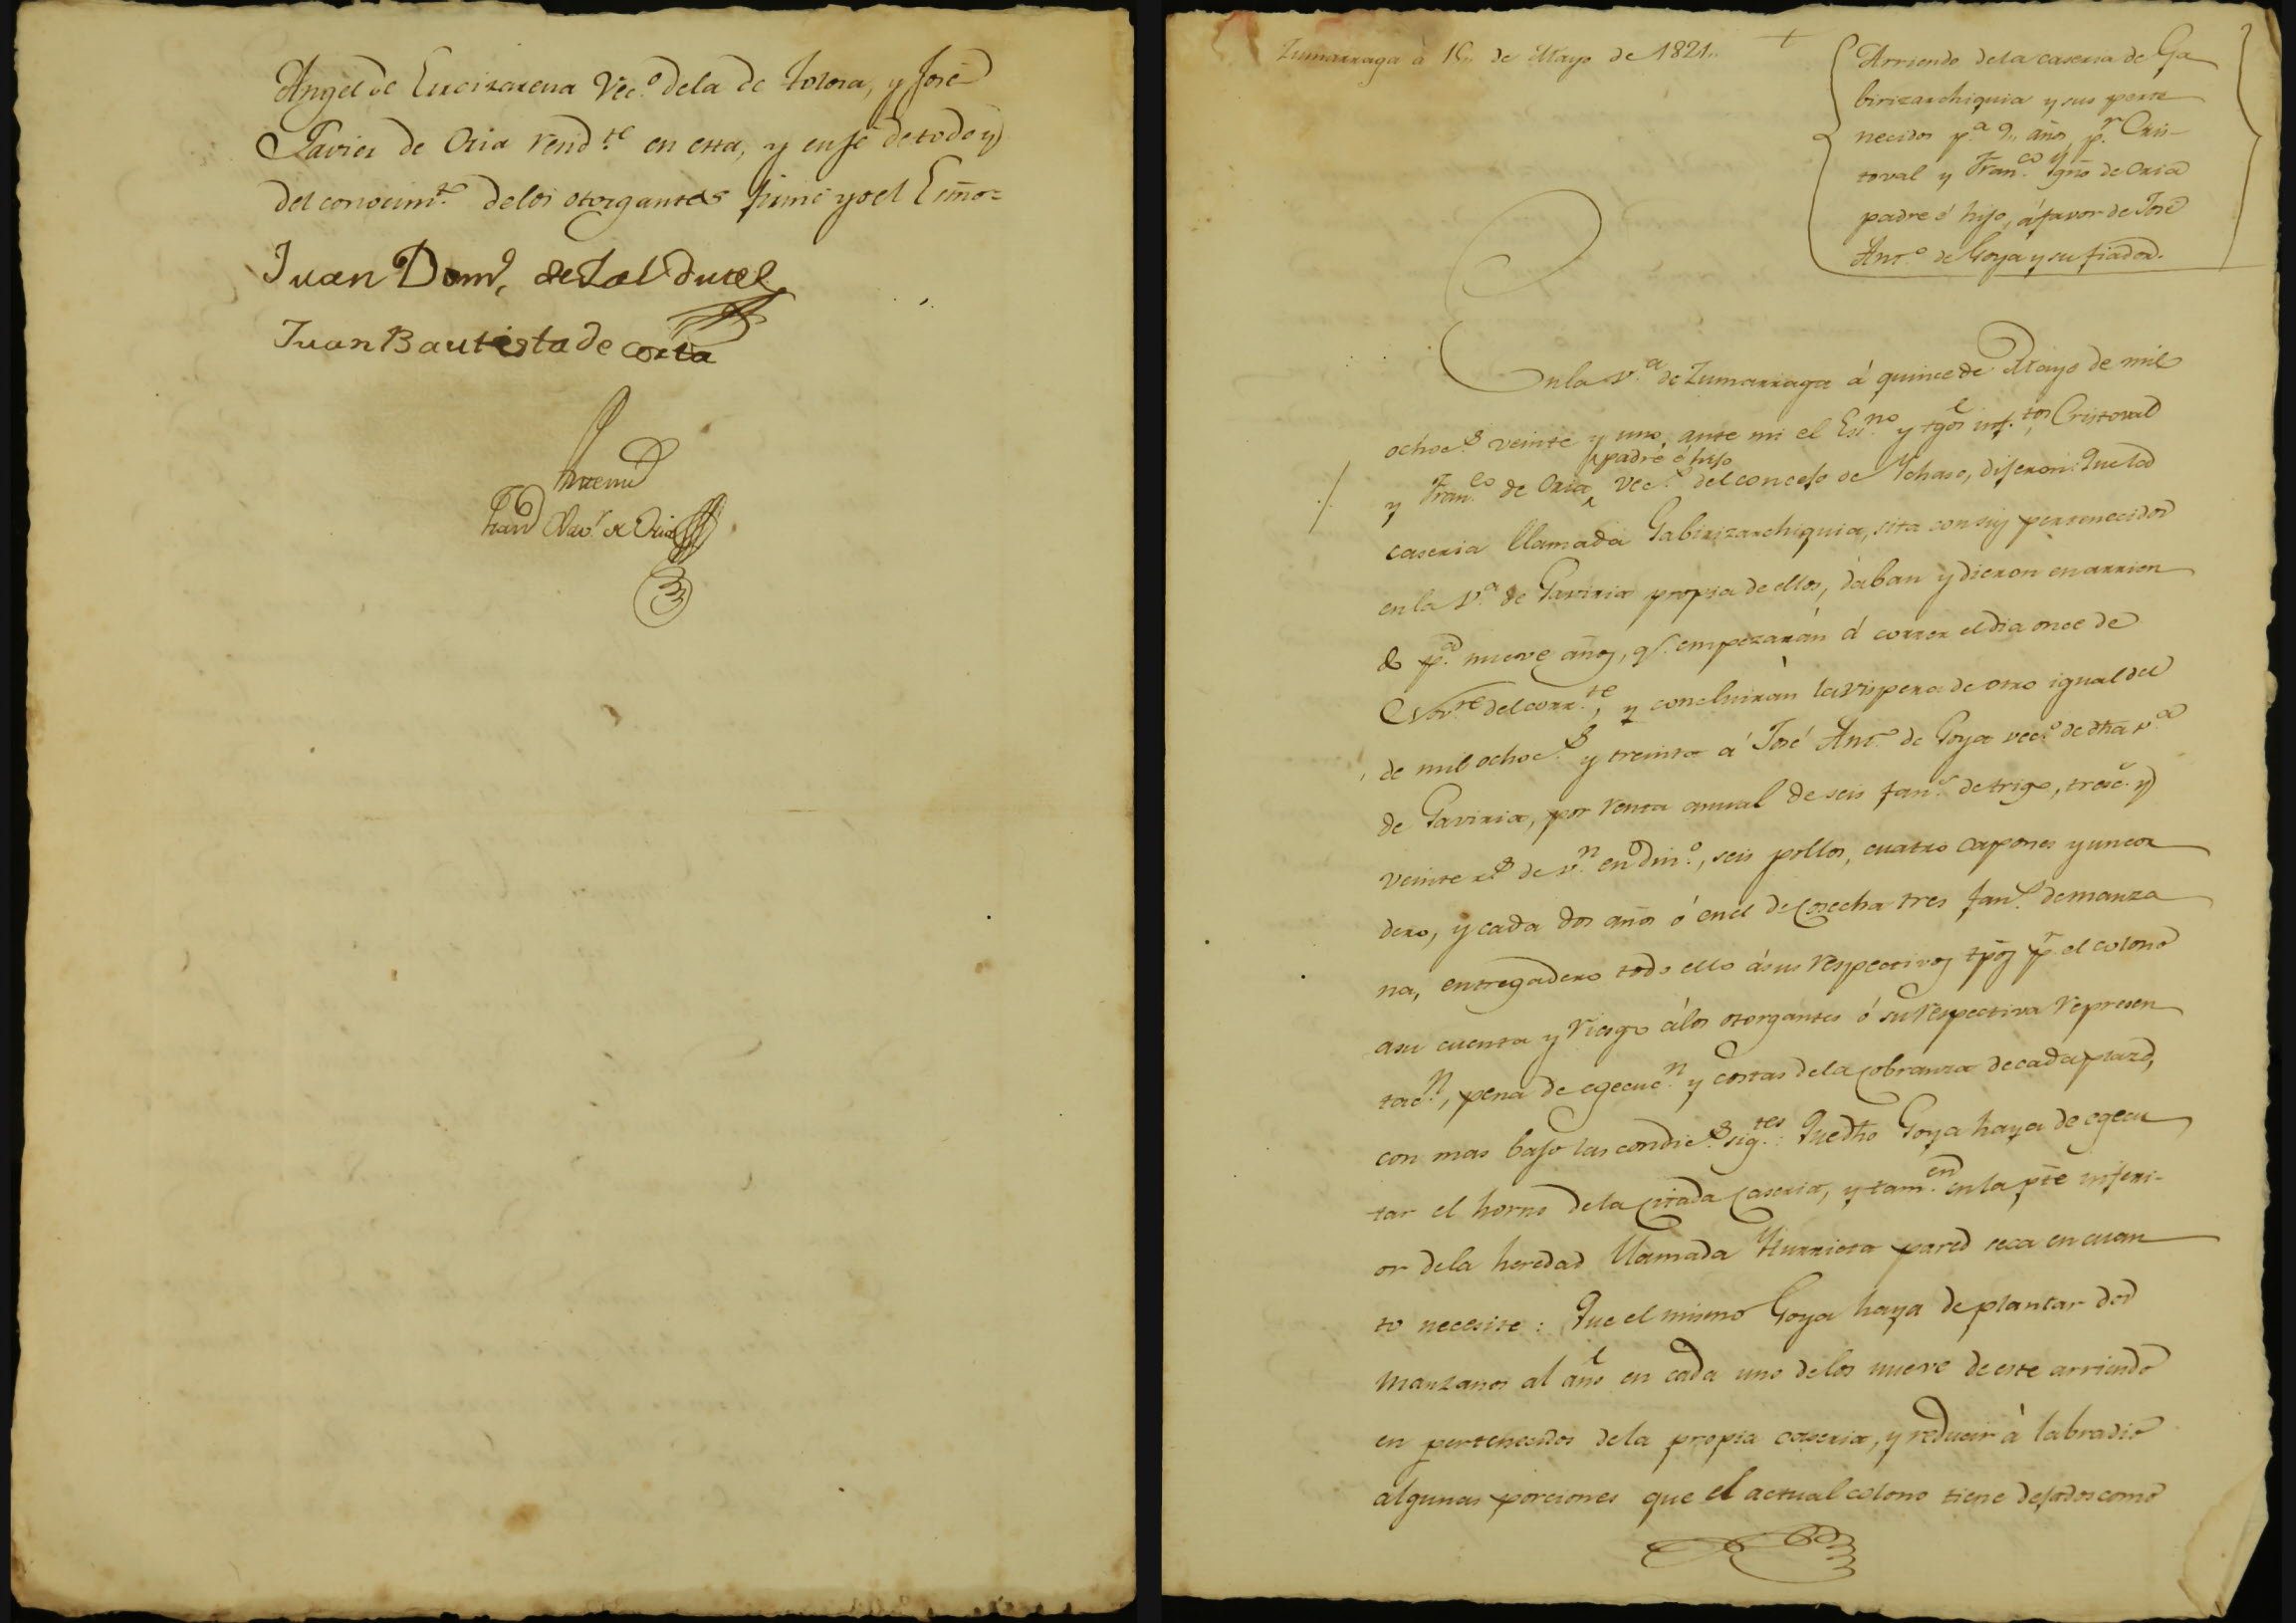 Angel de Eureizarena Vec.º dela de Tolosa, y José
Xavier de Oria resid.te en esta, y en fé de todo y
del conocim.to delos otorgantes firmé yo el Esño=
Juan Dom.º de Zal
Juan Bautista de Corta
Antemi
de Oria
Zumarraga à 15,, de Mayo de 1821,,
Arriendo dela caseria de Ga
birizarchiquia y sus perte
necidos p.ª 9,, años, p.r Cris-
toval y Fran.co Ygn̄o de Oria
padre é hijo, á favor de José
Ant.º de Goya y su fiador.
En la v.ª de Zumarraga á quince de Mayo de mil
ochoc.s veinte y uno, ante mi el Es.no y tg̃os inf.tos Cristoval
padre é hijo
y Fran.co de Oria vec.s del concejo de Ychaso, dijeron: Que la
caseria llamada Gabirizarchiquia, sita con sus pertenecidos
en la v.ª de Gaviria propia de ellos, daban y dieron en arrien
do p.ª nueve años, q.e empezarán á correr el dia once de
Nov.re del corr.te, y concluirán la vispera de otro igual del
de mil ochoc.s y treinta á José Ant.º de Goya vec.º de dha v.ª
de Gaviria, por renta anual de seis fan.s de trigo, tresc.s y
veinte r.s de v.n en din.º, seis pollos, cuatro capones y un cor
dero, y cada dos años ó en el de cosecha tres fan.s de manza
na, entregadero todo ello á sus respectivos tp̃os p.r el colono
a su cuenta y riesgo á los otorgantes ó su respectiva represen
tac.n, pena de egecuc.n y costas dela cobranza de cada plazo,
con mas bajo las condic.s sig.tes: Que dho Goya haya de egecu
tar el horno dela citada caseria, y tam.en en la pt̃e inferi-
or dela heredad llamada Yturriota pared seca en cuan
to necesite: Que el mismo Goya haya de plantar dos
manzanos al año en cada uno delos nueve de este arriendo
en pertenecidos dela propia caseria, y reducir à labradio
algunas porciones que el actual colono tiene dejados como